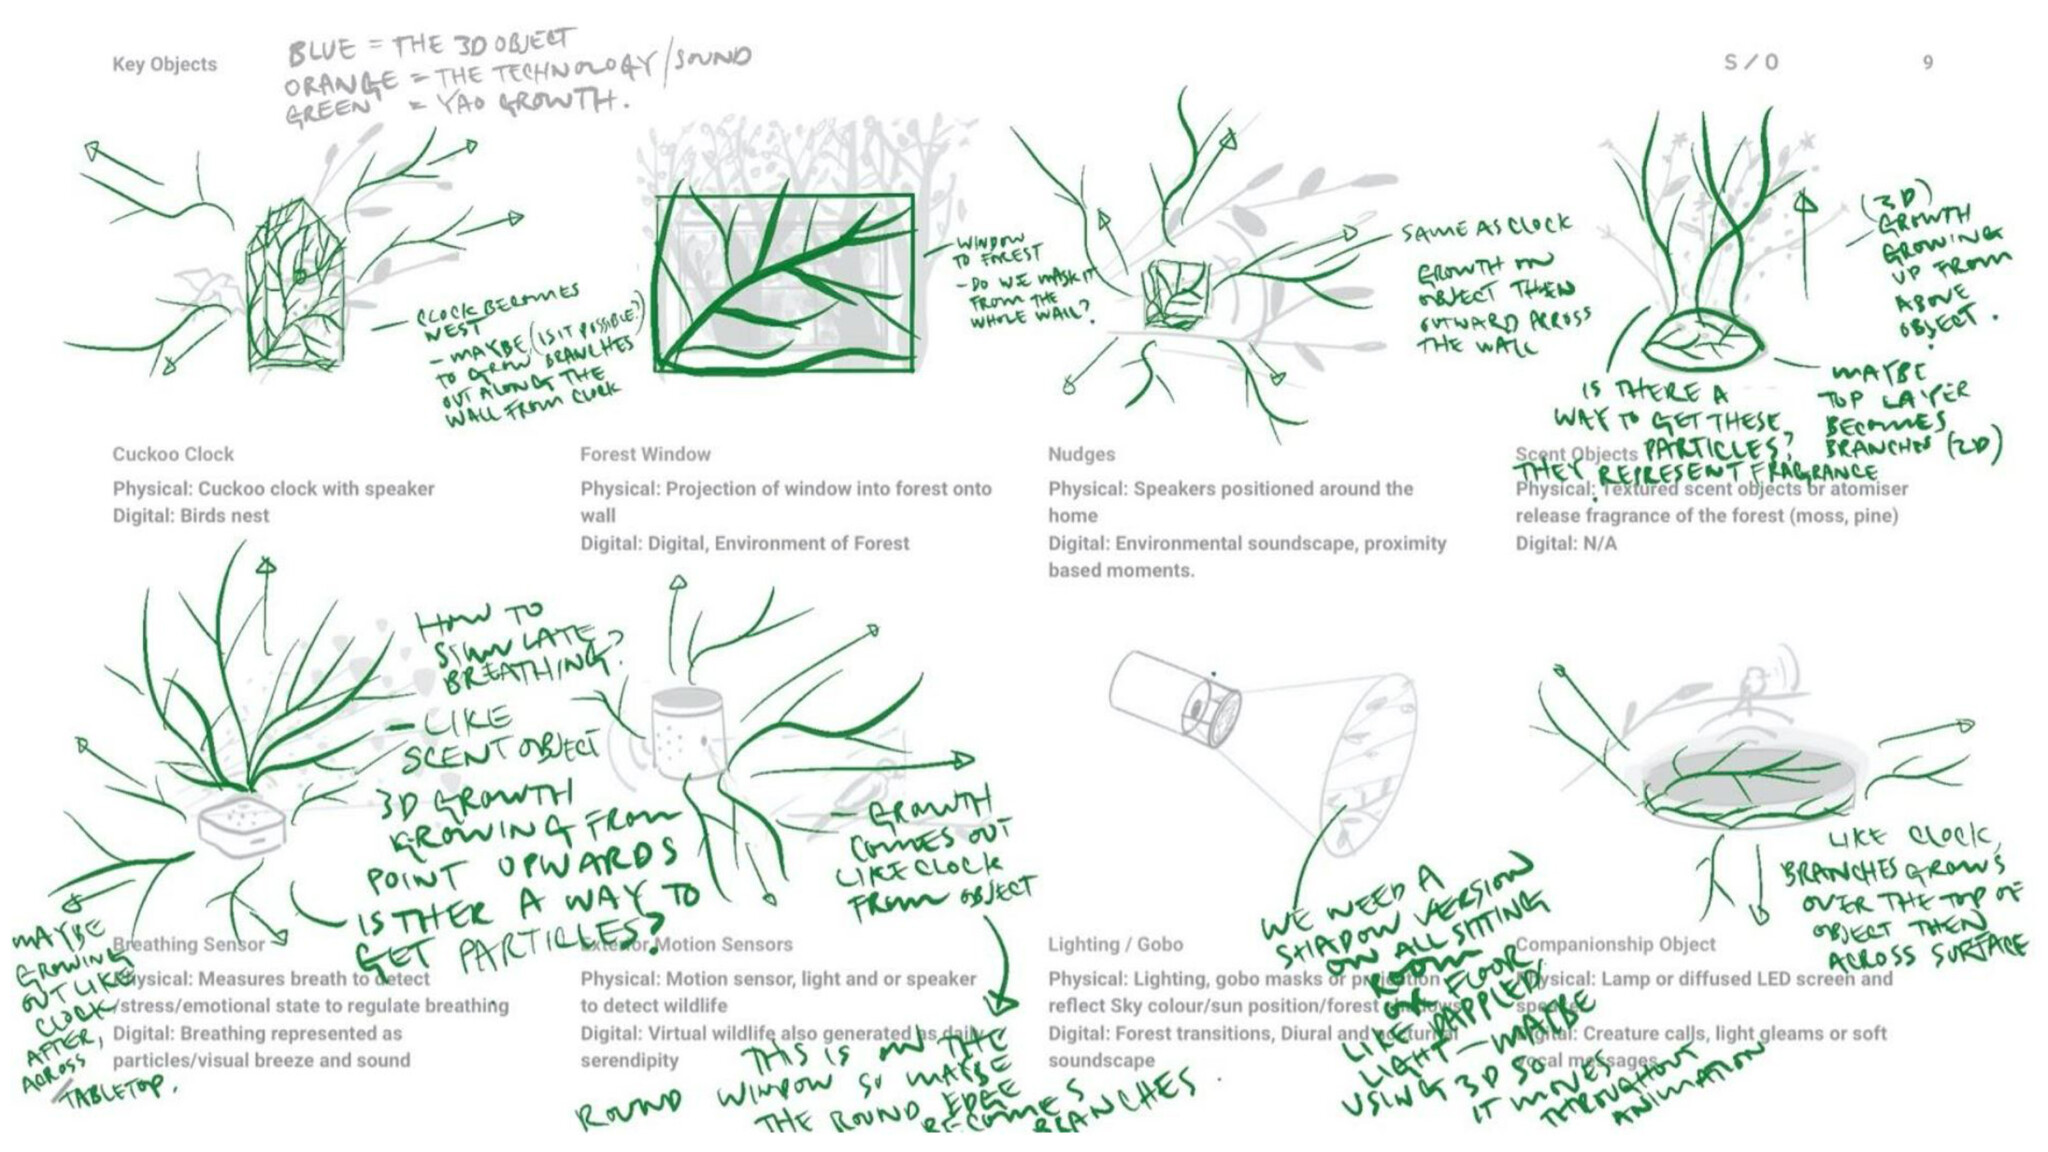 Key Objects
BLUE = THE 3D OBJECT
ORANGE = THE TECHNOLOGY/SOUND
GREEN = YAO GROWTH.
S / O
9
CLOCK BECOMES
NEST
- MAYBE (IS IT POSSIBLE?)
TO GROW BRANCHES
OUT ALONG THE
WALL FROM CLOCK
WINDOW
TO FOREST
- DO WE MASK IT
FROM THE
WHOLE WALL?
SAME AS CLOCK
GROWTH ON
OBJECT THEN
OUTWARD ACROSS
THE WALL
(3D)
GROWTH
GROWING
UP FROM
ABOVE
OBJECT.
IS THERE A
WAY TO GET THESE
PARTICLES?
THEY REPRESENT FRAGRANCE
MAYBE
TOP LAYER
BECOMES
BRANCHES (2D)
Cuckoo Clock
Physical: Cuckoo clock with speaker
Digital: Birds nest
Forest Window
Physical: Projection of window into forest onto
wall
Digital: Digital, Environment of Forest
Nudges
Physical: Speakers positioned around the
home
Digital: Environmental soundscape, proximity
based moments.
Scent Objects
Physical: Textured scent objects or atomiser
release fragrance of the forest (moss, pine)
Digital: N/A
HOW TO
SIMULATE
BREATHING?
- LIKE
SCENT OBJECT
3D GROWTH
GROWING FROM
POINT UPWARDS
IS THER A WAY TO
GET PARTICLES?
MAYBE
GROWING
OUT LIKE
CLOCK
AFTER,
ACROSS
TABLETOP.
- GROWTH
COMES OUT
LIKE CLOCK
FROM OBJECT
THIS IS ON THE
ROUND WINDOW SO MAYBE
THE ROUND EDGE
BECOMES
BRANCHES
WE NEED A
SHADOW VERSION
ON ALL SITTING
ROOM
OR FLOOR
LIKE DAPPLED
LIGHT - MAYBE
USING 3D SO
IT MOVES
THROUGHOUT
ANIMATION
LIKE CLOCK,
BRANCHES GROWS
OVER THE TOP OF
OBJECT THEN
ACROSS SURFACE
Breathing Sensor
Physical: Measures breath to detect
/stress/emotional state to regulate breathing
Digital: Breathing represented as
particles/visual breeze and sound
Exterior Motion Sensors
Physical: Motion sensor, light and or speaker
to detect wildlife
Digital: Virtual wildlife also generated as daily
serendipity
Lighting / Gobo
Physical: Lighting, gobo masks or projection
reflect Sky colour/sun position/forest
Digital: Forest transitions, Diural and
soundscape
Companionship Object
Physical: Lamp or diffused LED screen and
Digital: Creature calls, light gleams or soft
vocal messages